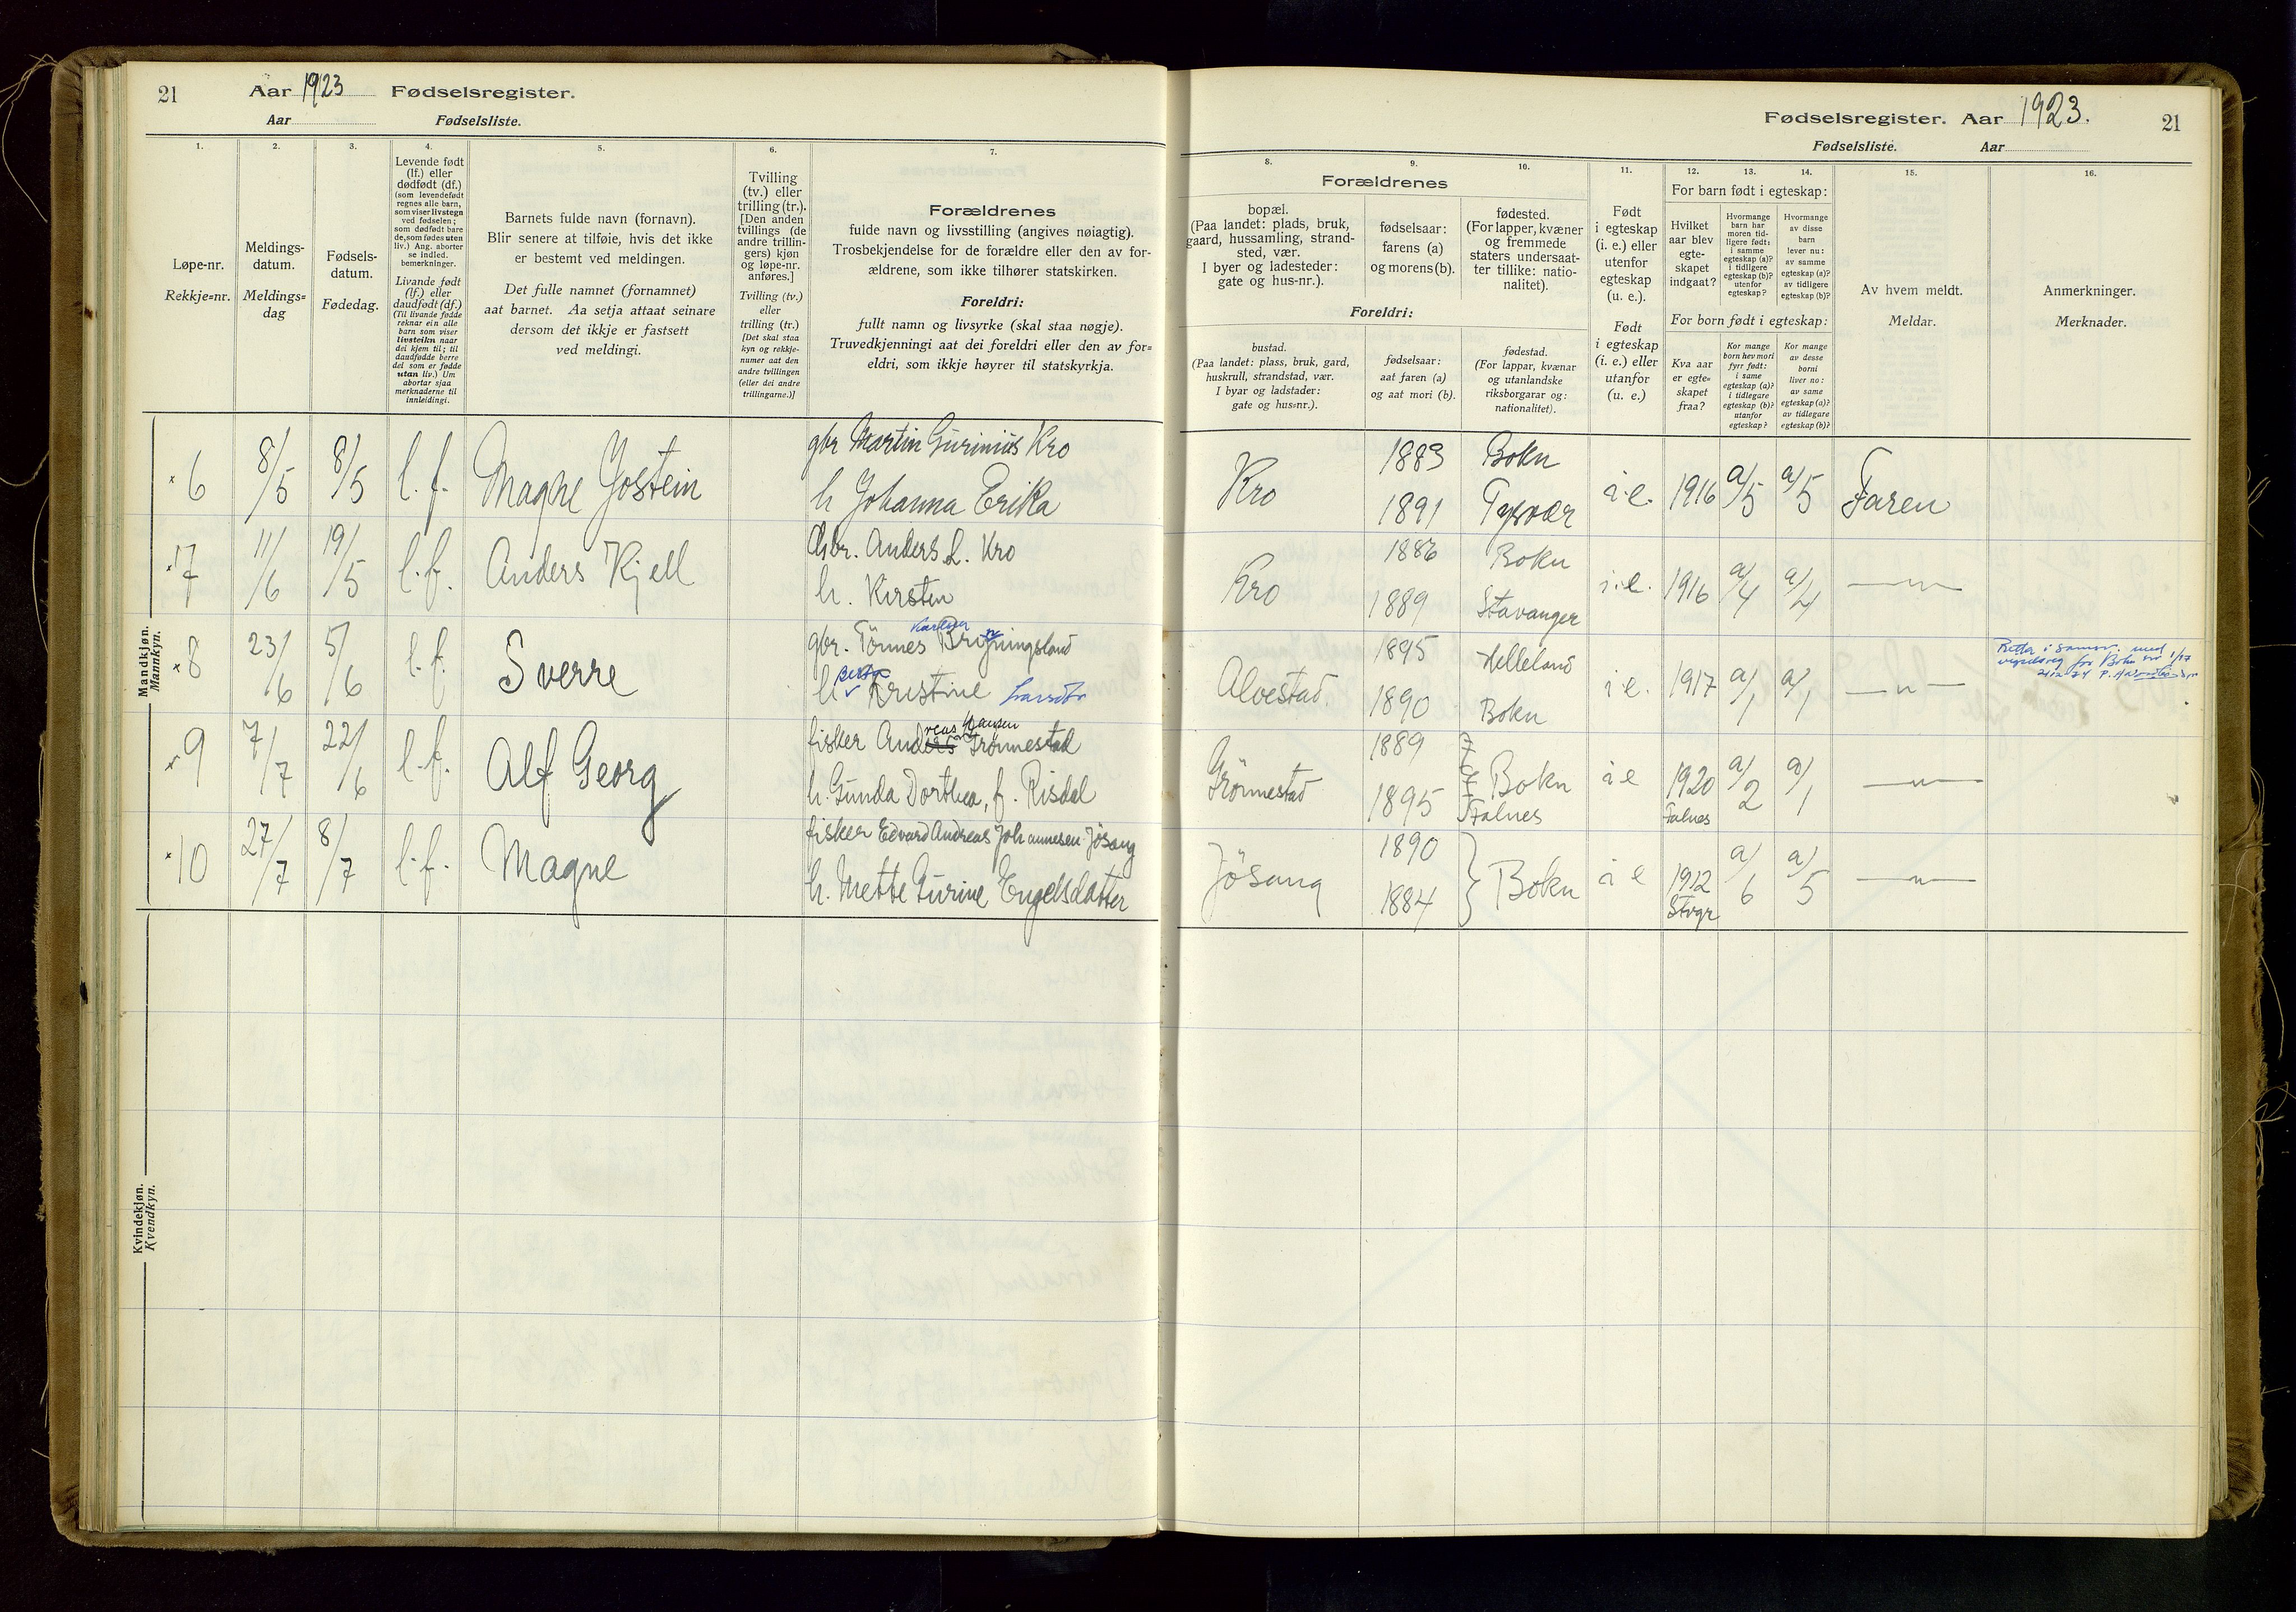 21
Aar 1923 Fødselsregister.
Aar Fødselsliste.
1.
2.
3.
4.
5.
6.
7.
Løpe-nr.
Rekkje=nr.
Meldings-
datum.
Meldings=
dag
Fødsels-
datum.
Fødedag.
Levende født
(lf.) eller
dødfødt (df.)
(som levendefødt
regnes alle barn,
som viser livstegn
ved fødselen;
som dødfødt bare
de, som fødes uten
liv.) Ang. aborter
se indled.
bemerkninger.
Livande født
(lf.) eller
daudfødt (df.)
(Til livande fødde
reknar ein alle
barn som viser
livsteikn naar
dei kjem til; til
daudfødde berre
dei som er fødde
utan liv.) Um
abortar sjaa
merknaderne til
innleidingi.
Barnets fulde navn (fornavn).
Blir senere at tilføie, hvis det ikke
er bestemt ved meldingen.
Det fulle namnet (fornamnet)
aat barnet. Aa setja attaat seinare
dersom det ikkje er fastsett
ved meldingi.
Tvilling
(tv.) eller
trilling (tr.).
[Den anden
tvillings (de
andre trillin-
gers) kjøn
og løpe-nr.
anføres.]
Tvilling (tv.)
eller
trilling (tr.)
[Det skal staa
kyn og rekkje-
numer aat den
andre tvillingen
(eller dei andre
trillingarne.)]
Forældrenes
fulde navn og livsstilling (angives nøiagtig).
Trosbekjendelse for de forældre eller den av for-
ældrene, som ikke tilhører statskirken.
Foreldri:
fullt namn og livsyrke (skal staa nøgje).
Truvedkjenningi aat dei foreldri eller den av for=
eldri, som ikkje høyrer til statskyrkja.
Mandkjøn.
Mannkyn.
6 8/5 8/5 l. f. Magne Jostein gbr Martin Gurinius Kro
h Johanna Erika
7 11/6 19/5 l. f. Anders Kjell Gbr. Anders L. Kro
h. Kirsten
8 23/6 5/6 l. f. Sverre gbr. Tönnes Bringsland
h Kristine
9 7/7 22/6 l. f. Alf Georg fisker Andreas Hansen Grönnestad
h. Gunda Dorthea, f. Risdal
10 27/7 8/7 l. f. Magne fisker Edvard Andreas Johannesen Jösang
h. Mette Gurine Engelsdatter
Kvindekjøn.
Kvendkyn.
Fødselsregister. Aar 1923.
21
Fødselsliste. Aar
8.
9.
10.
11.
12.
13.
14.
15.
16.
Forældrenes
bopæl.
(Paa landet: plads, bruk,
gaard, hussamling, strand-
sted, vær.
I byer og ladesteder:
gate og hus-nr.).
fødselsaar:
farens (a)
og morens (b).
fødested.
(For lapper, kvæner
og fremmede
staters undersaat-
ter tillike: natio-
nalitet).
Foreldri:
bustad.
(Paa landet: plass, bruk, gard,
huskrull, strandstad, vær.
I byar og ladstader:
gate og hus=nr.).
fødselsaar:
aat faren (a)
og aat mori (b).
fødestad.
(For lappar, kvænar
og utanlandske
riksborgarar og:
nationalitet).
Født
i egteskap
(i. e.) eller
utenfor
egteskap
(u. e.).
Født
i egteskap
(i. e.) eller
utanfor
(u. e.)
For barn født i egteskap:
Hvilket
aar blev
egte-
skapet
indgaat?
Hvormange
barn har
moren tid-
ligere født:
i samme
egteskap (a)?
i tidligere
egteskap (b)?
utenfor
egteskap?
Hvormange
av disse
barn
lever nu:
av samme
egteskap (a)?
av tidligere
egteskap (b)?
For born født i egteskap:
Kva aar
er egte=
skapet
fraa?
Kor mange
born hev mori
fyrr født:
i same
egteskap (a)?
i tidlegare
egteskap (b)?
utanfor
egteskap?
Kor mange
av desse
borni
liver no:
av same
egteskap (a)?
av tidlegare
egteskap (b)?
Av hvem meldt.
Meldar.
Anmerkninger.
Merknader.
Kro 1883 Bokn i. e. 1916 a/5 a/5 Faren
1891 Tysvær
Kro 1886 Bokn i. e. 1916 a/4 a/4 —"—
1889 Stavanger
Alvestad. 1895 Helleland i e. 1917 a/1 a/1 —"—
1890 Bokn
Grönnestad 1889 Bokn i e 1920 a/2 a/1 —"—
1895 Falnes Falnes
Jösang 1890 Bokn i e 1912 a/6 a/5 —"—
1884 Stvgr